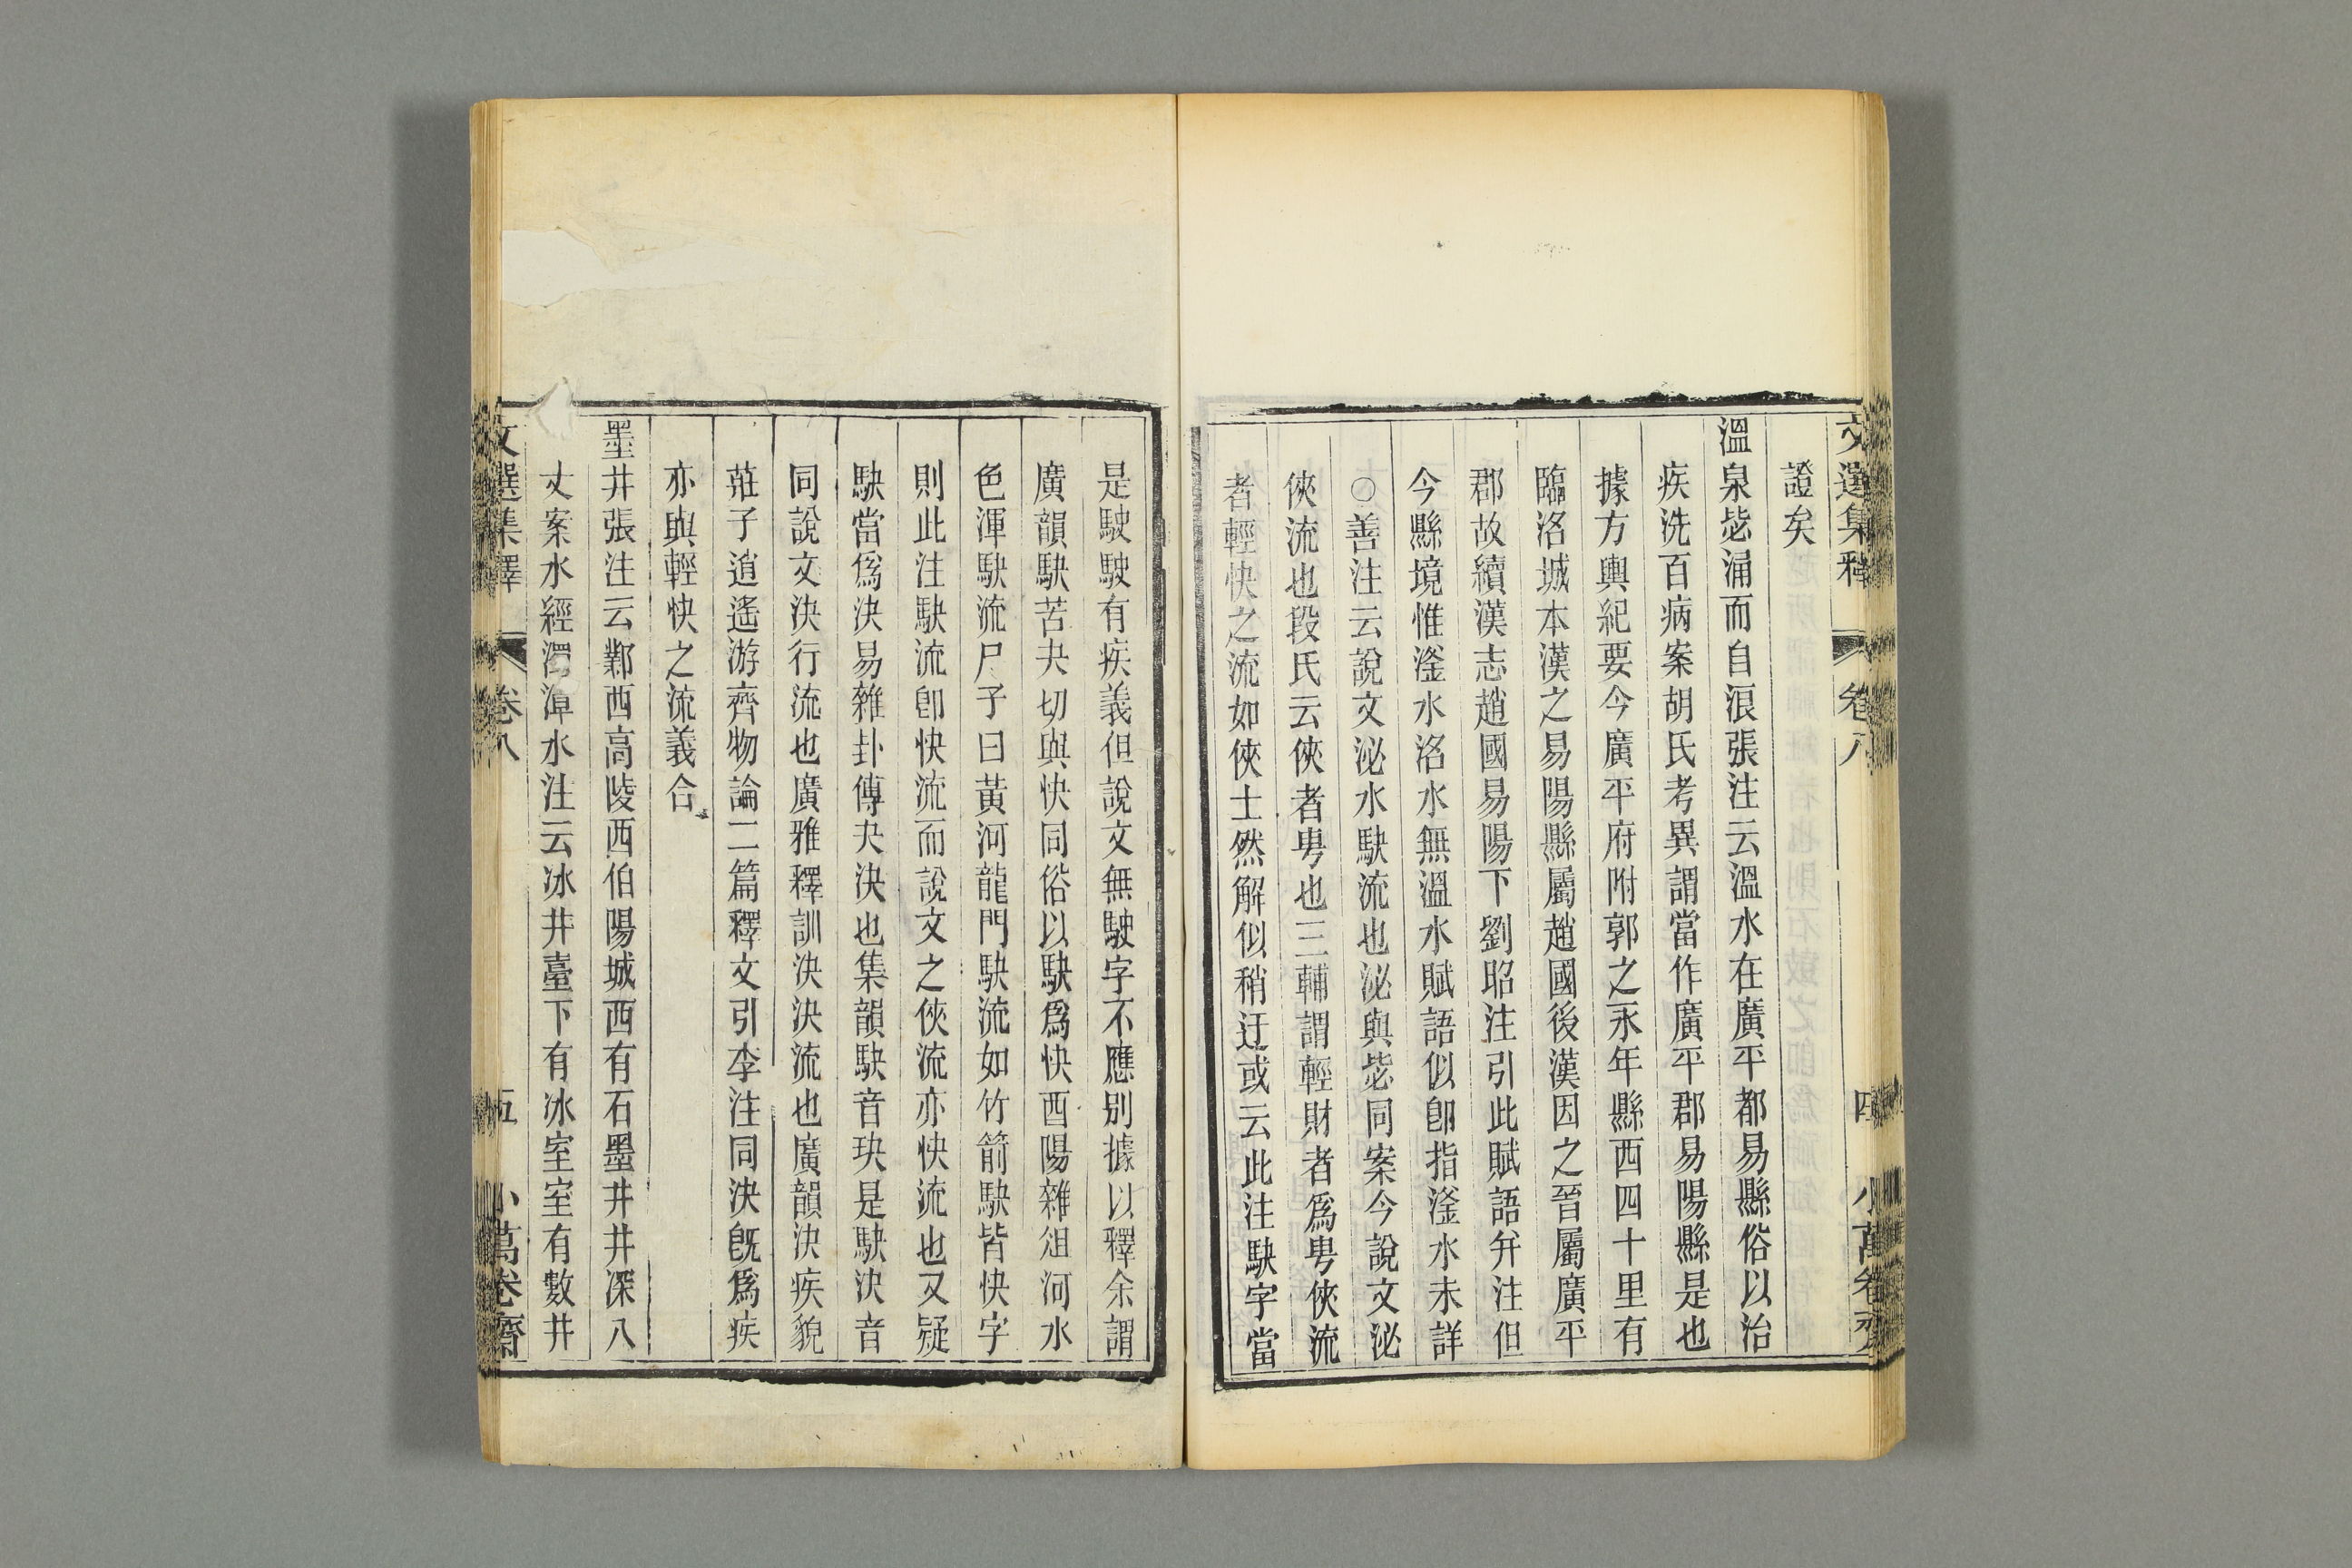 文選集釋 卷八 四 小萬卷齋
證矣
溫泉毖涌而自浪張注云溫水在廣平都易縣俗以治
疾洗百病案胡氏考異謂當作廣平郡易陽縣是也
據方輿紀要今廣平府附郭之永年縣西四十里有
臨洺城本漢之易陽縣屬趙國後漢因之晉屬廣平
郡故續漢志趙國易陽下劉昭注引此賦語弁注但
今縣境惟滏水洺水無溫水賦語似卽指滏水未詳
○善注云說文泌水駃流也泌與毖同案今說文泌
俠流也段氏云俠者甹也三輔謂輕財者爲甹俠流
者輕快之流如俠士然解似稍迂或云此注駃字當
是駛駛有疾義但說文無駛字不應別據以釋余謂
廣韻駃苦夬切與快同俗以駃爲快酉陽雜俎河水
色渾駃流尸子曰黃河龍門駃流如竹箭駃皆快字
則此注駃流卽快流而說文之俠流亦快流也又疑
駃當爲決易雜卦傳夬決也集韻駃音玦是駃決音
同說文決行流也廣雅釋訓決決流也廣韻決疾貌
莊子逍遙游齊物論二篇釋文引李注同決旣爲疾
亦與輕快之流義合
墨井張注云鄴西高陵西伯陽城西有石墨井井深八
丈案水經濁漳水注云冰井臺下有冰室室有數井
文選集釋 卷八 五 小萬卷齋